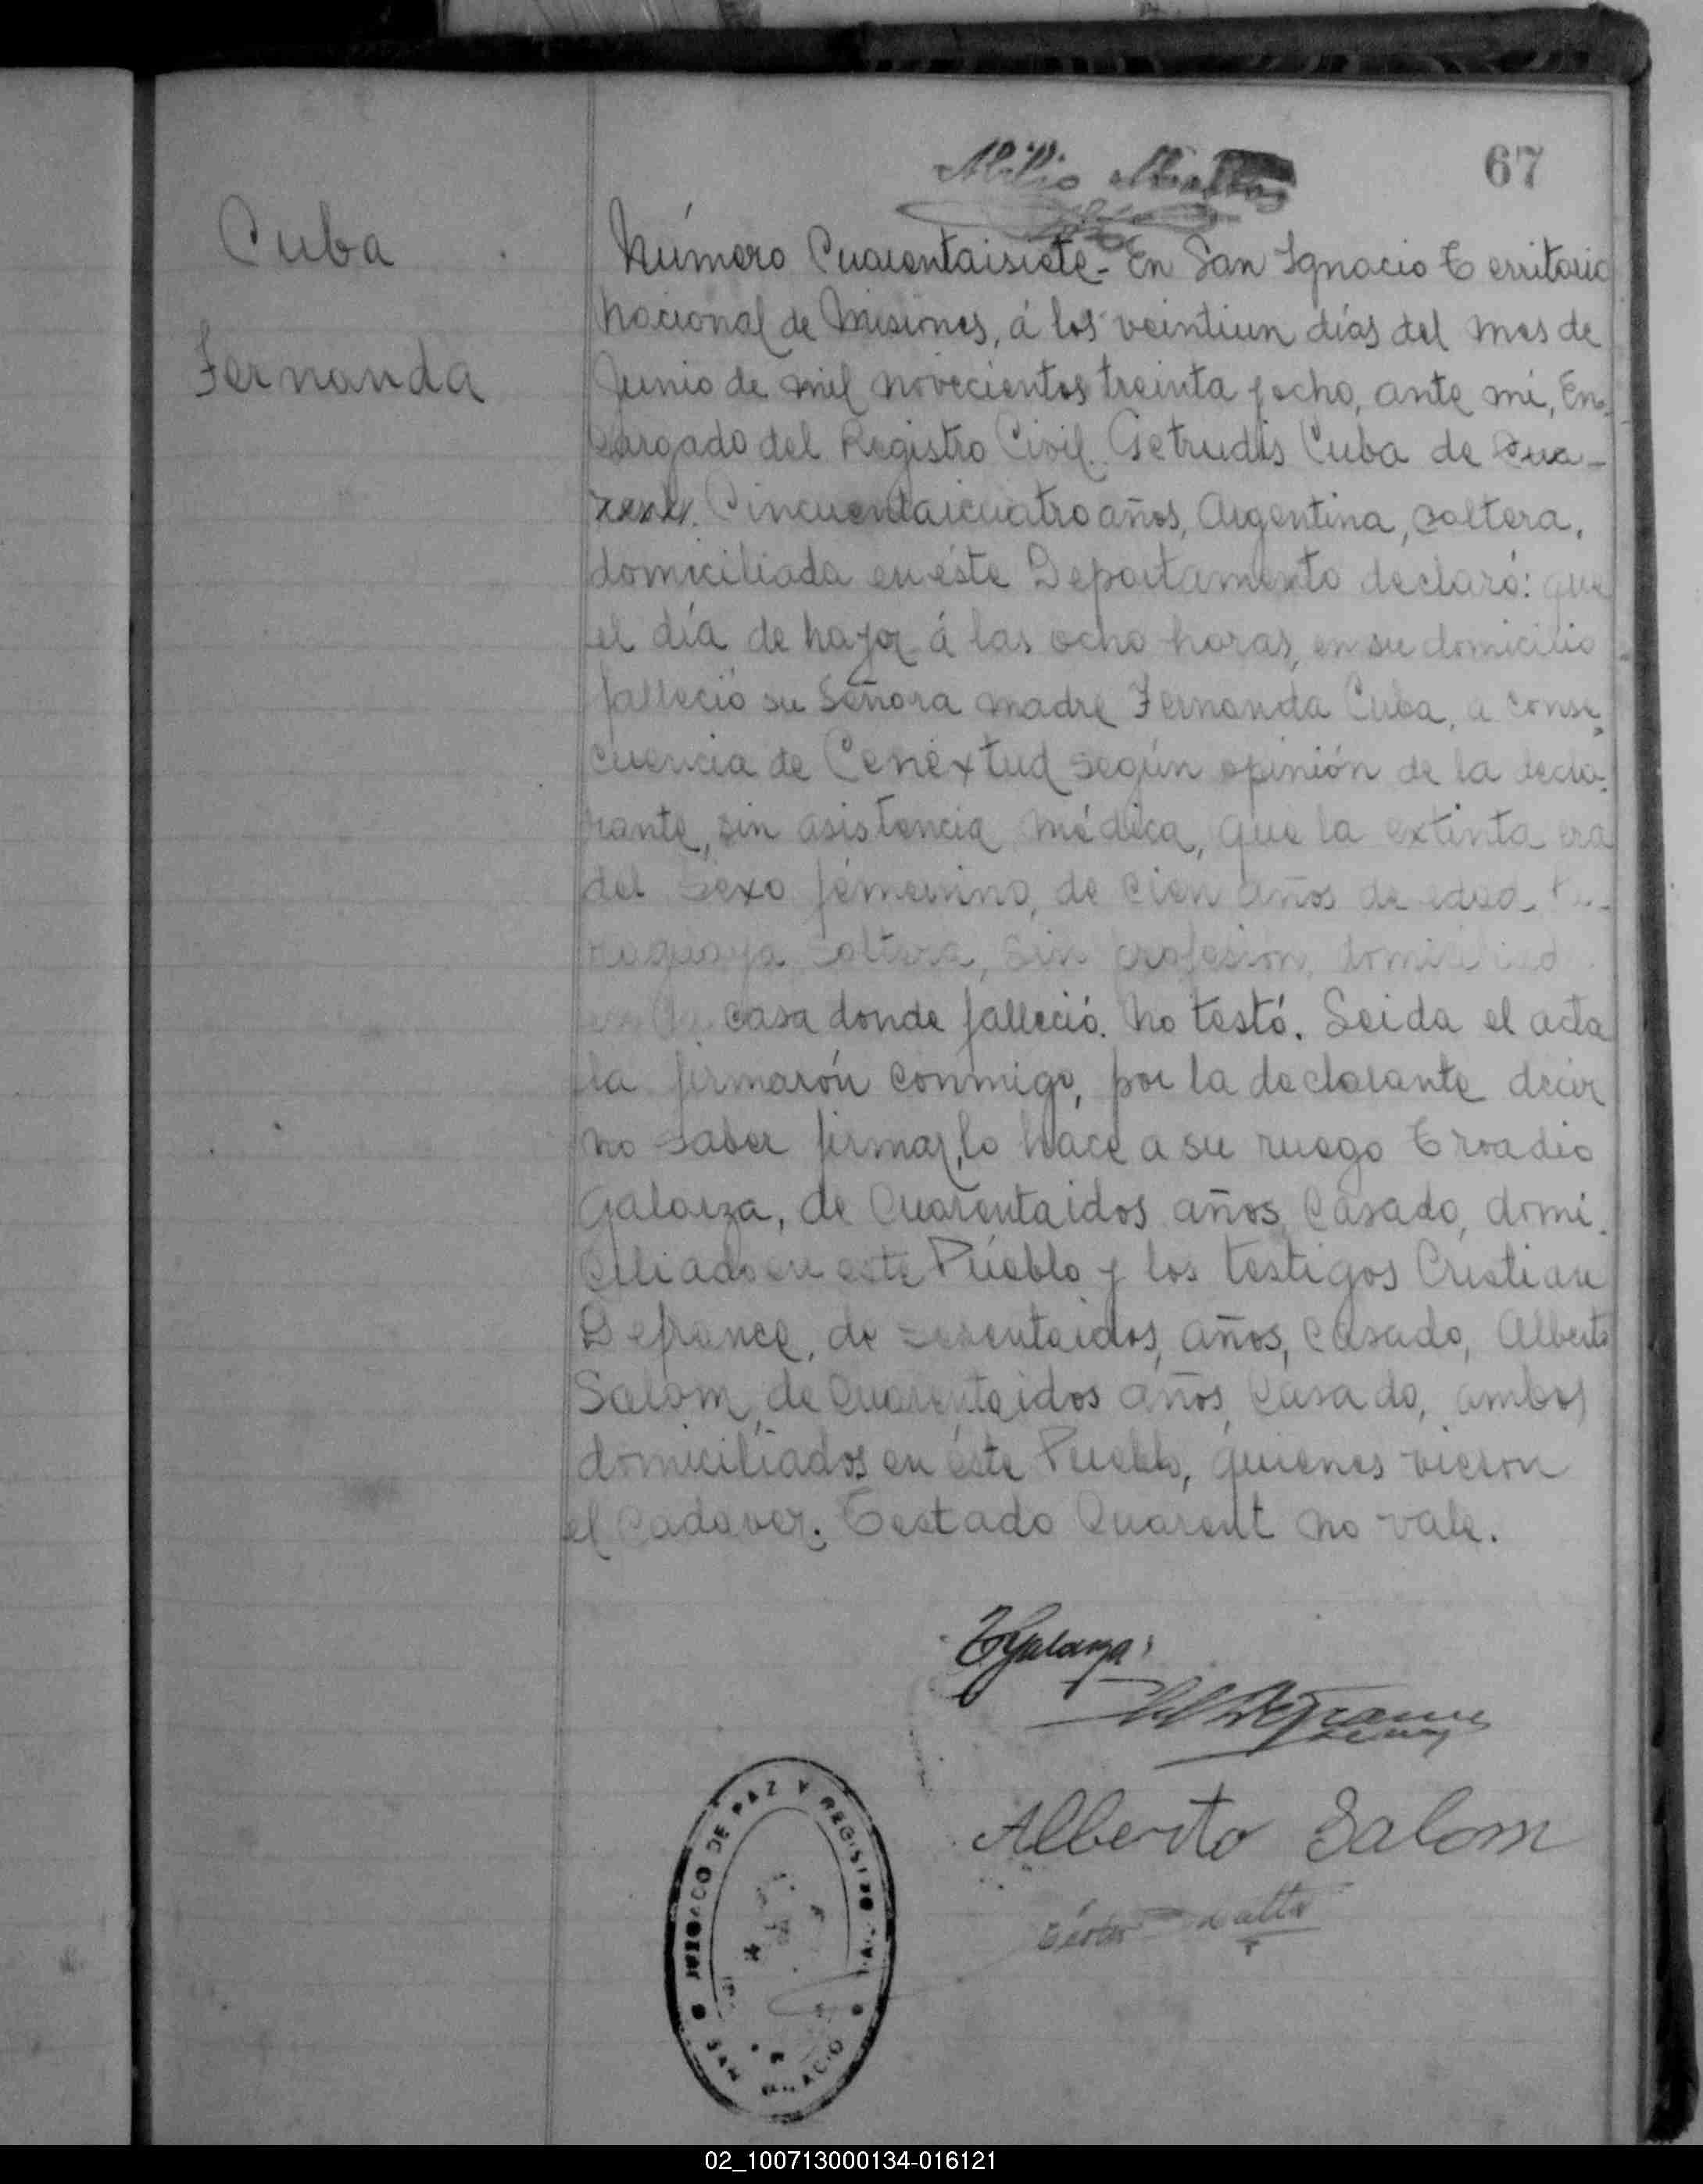 67
Cuba
Fernanda
Número Cuarentaisiete- En San Ignacio Territorio
Nacional de Misiones, á los veintiun días del mes de
Junio de mil novecientos treinta y ocho, ante mi, En-
cargado del Registro Civil. Getrudis Cuba de Cua-
Cincuentaicuatro años, Argentina, soltera,
domiciliada en éste Departamento declaró: que
el día de hoy á las ocho horas, en su domicilio
falleció su Señora madre Fernanda Cuba, a conse-
cuencia de Cenextud según opinión de la decla-
rante, sin asistencia médica, que la extinta era
del Sexo femenino, de cien años de edad Pa-
raguaya soltera, sin profesión, domiciliad
en la casa donde falleció. No testó. Leida el acta
la firmarón conmigo, por la declarante decir
no saber firmar, lo hace a su ruego Troadio
Galarza, de Cuarentaidos años, Casado, domi-
ciliado en este Pueblo y los testigos Cristian
Defrance, de sesentaidos, años, casado, Alberto
Salom, de Cuarentaidos años, Casado, ambos
domiciliados en éste Pueblo, quienes vieron
el Cadaver. Testado Cuarent no vale.
TGalarza
Defrance
Alberto Salom
JUZGADO DE PAZ Y REGISTRO
SAN IGNACIO
02_100713000134-016121